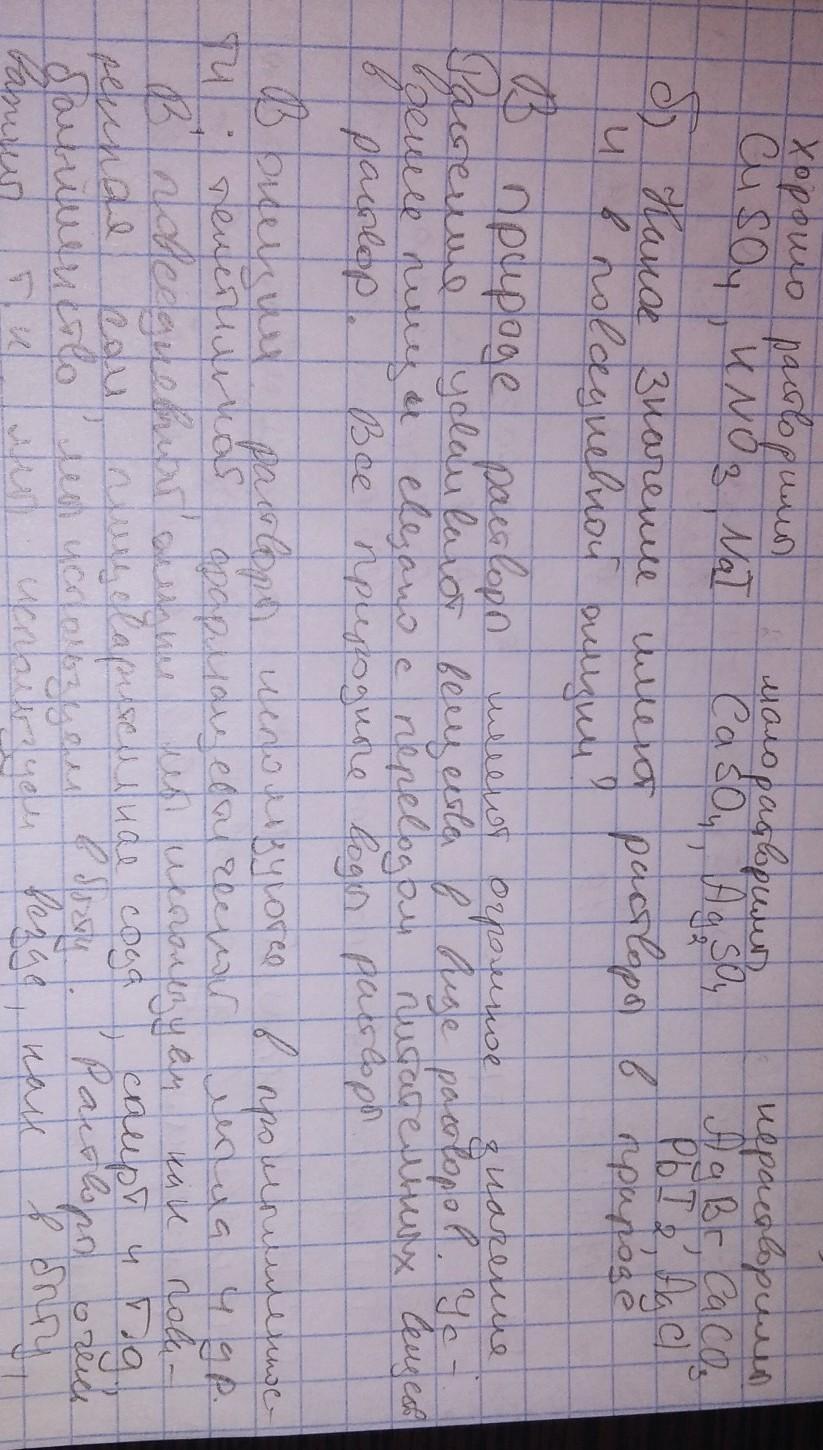 хорошо растворимы малорастворимы нерастворимы
CuSO4, KNO3, NaI CaSO4, Ag2SO4 AgBr, CaCO3
PbI2, AgCl
б) Какое значение имеют растворы в природе
и в повседневной жизни?
В природе растворы имеют огромное значение
Растения усваивают вещества в виде растворов. Ус-
воение пищи связано с переводом питательных веществ
в раствор. Все природные воды растворы
В жизни растворы используются в промышленнос-
ти: текстильной фармацевтической легля и др.
В повседневной жизни мы используем как пова-
ренная соль пищеварительная сода, спирт и т.д
большинство мы используем в быту. Растворы очень
важны т.к мы используем везде, как в быту,